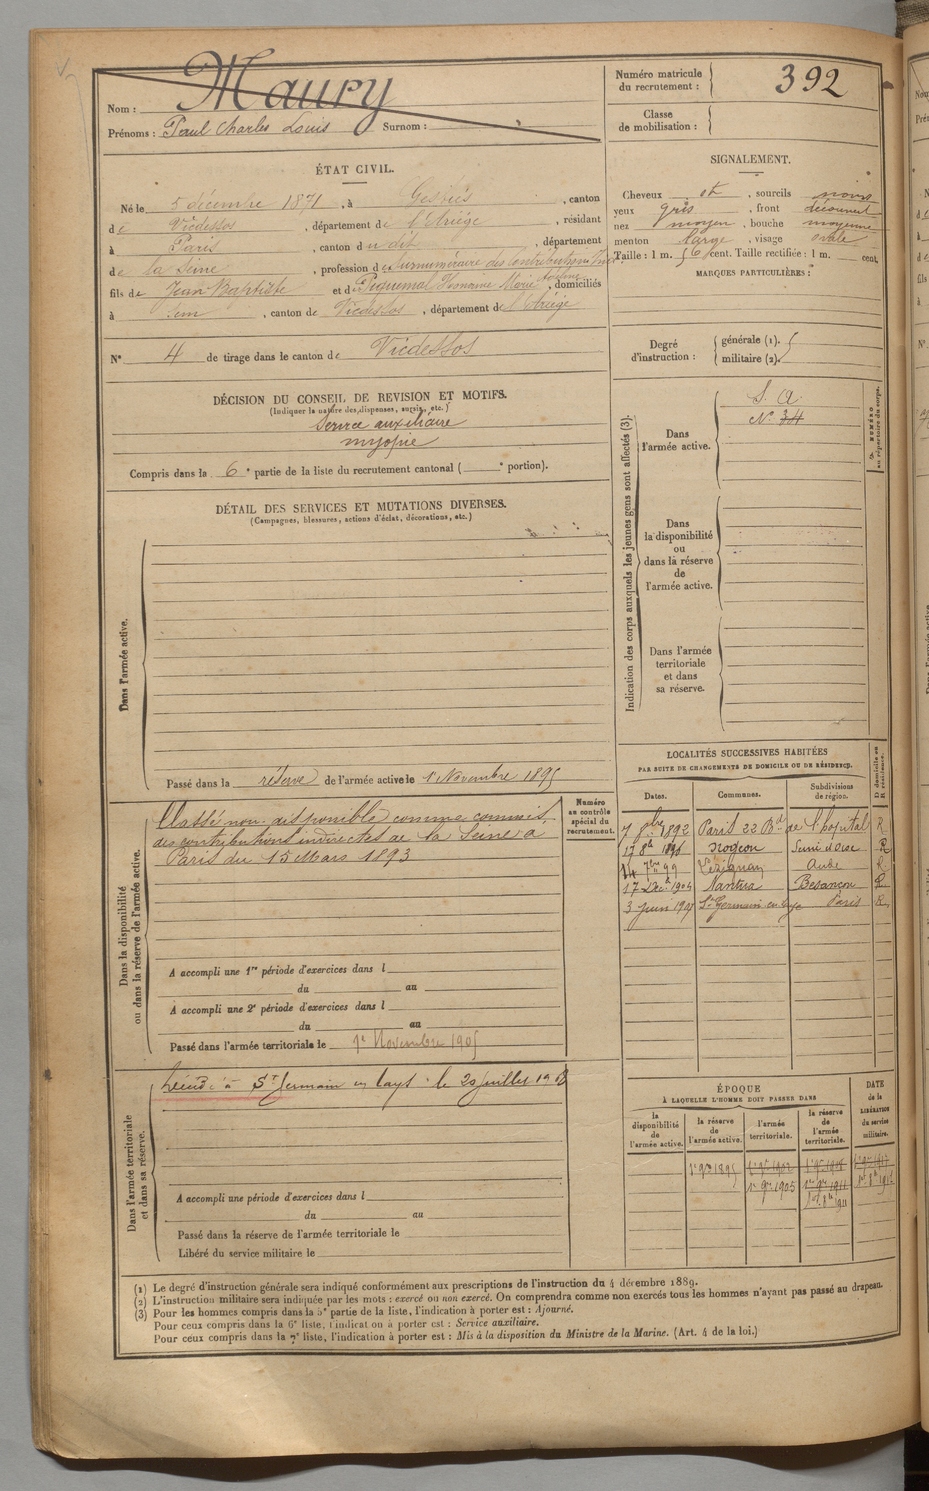 Nom : Maury
Prénoms : Paul Charles Louis Surnom :
Numéro matricule du recrutement : 392
Classe de mobilisation :
ÉTAT CIVIL.
Né le 5 décembre 1871, à Gesties, canton
de Vicdessos, département de l'Ariége, résidant
à Paris, canton du dit, département
de la Seine, profession de surnuméraire des Contributions
fils de Jean Baptiste et de Piquemal Honorine Marie, domiciliés
à idem, canton de Vicdessos, département de l'Ariége
N° 4 de tirage dans le canton de Vicdessos
SIGNALEMENT.
Cheveux et, sourcils noirs
yeux gris, front découvert
nez moyen, bouche moyenne
menton large, visage ovale
Taille : 1 m. 56 cent. Taille rectifiée : 1 m. cent.
MARQUES PARTICULIÈRES :
Degré d'instruction : générale (1). 5
militaire (2).
DÉCISION DU CONSEIL DE REVISION ET MOTIFS.
(Indiquer la nature des dispenses, sursis, etc.)
Service auxiliaire
myopie
Compris dans la 6e partie de la liste du recrutement cantonal ( e portion).
DÉTAIL DES SERVICES ET MUTATIONS DIVERSES.
(Campagnes, blessures, actions d'éclat, décorations, etc.)
Dans l'armée active.
Passé dans la réserve de l'armée active le 1er Novembre 1895
Indication des corps auxquels les jeunes gens sont affectés (3).
NUMÉRO au répertoire du corps.
Dans l'armée active.
S. A
N° 34
Dans la disponibilité ou dans la réserve de l'armée active.
Dans l'armée territoriale et dans sa réserve.
Dans la disponibilité ou dans la réserve de l'armée active.
Numéro au contrôle spécial du recrutement.
Classé non disponible comme commis
des contributions indirectes de la Seine à
Paris du 15 Mars 1893
A accompli une 1re période d'exercices dans l
du au
A accompli une 2e période d'exercices dans l
du au
Passé dans l'armée territoriale le 1er Novembre 1905
LOCALITÉS SUCCESSIVES HABITÉES
PAR SUITE DE CHANGEMENTS DE DOMICILE OU DE RÉSIDENCE.
Dates. Communes. Subdivisions de région. D domicile ou R résidence.
1892 Paris 22 Bd de l'hopital R
Nogeon Seine et Oise R
14 7bre 99 Lézignan Aude R
17 Déc. 1904 Nantua Besançon R
3 Juin 1907 St Germain en Laye Paris R
Dans l'armée territoriale et dans sa réserve.
Décédé à St Germain en Laye le 20 Juillet 1908
A accompli une période d'exercices dans l
du au
Passé dans la réserve de l'armée territoriale le
Libéré du service militaire le
ÉPOQUE
À LAQUELLE L'HOMME DOIT PASSER DANS
la disponibilité de l'armée active. la réserve de l'armée active. l'armée territoriale. la réserve de l'armée territoriale. DATE de la LIBÉRATION du service militaire.
1er 9bre 1895 1er 9bre 1902 1er 9bre 1908 1er 9bre 1917
1er 9bre 1905 1er 9bre 1911
1er 8bre 1911
(1) Le degré d'instruction générale sera indiqué conformément aux prescriptions de l'instruction du 4 décembre 1889.
(2) L'instruction militaire sera indiquée par les mots : exercé ou non exercé. On comprendra comme non exercés tous les hommes n'ayant pas passé au drapeau.
(3) Pour les hommes compris dans la 5e partie de la liste, l'indication à porter est : Ajourné.
Pour ceux compris dans la 6e liste, l'indication à porter est : Service auxiliaire.
Pour ceux compris dans la 7e liste, l'indication à porter est : Mis à la disposition du Ministre de la Marine. (Art. 4 de la loi.)